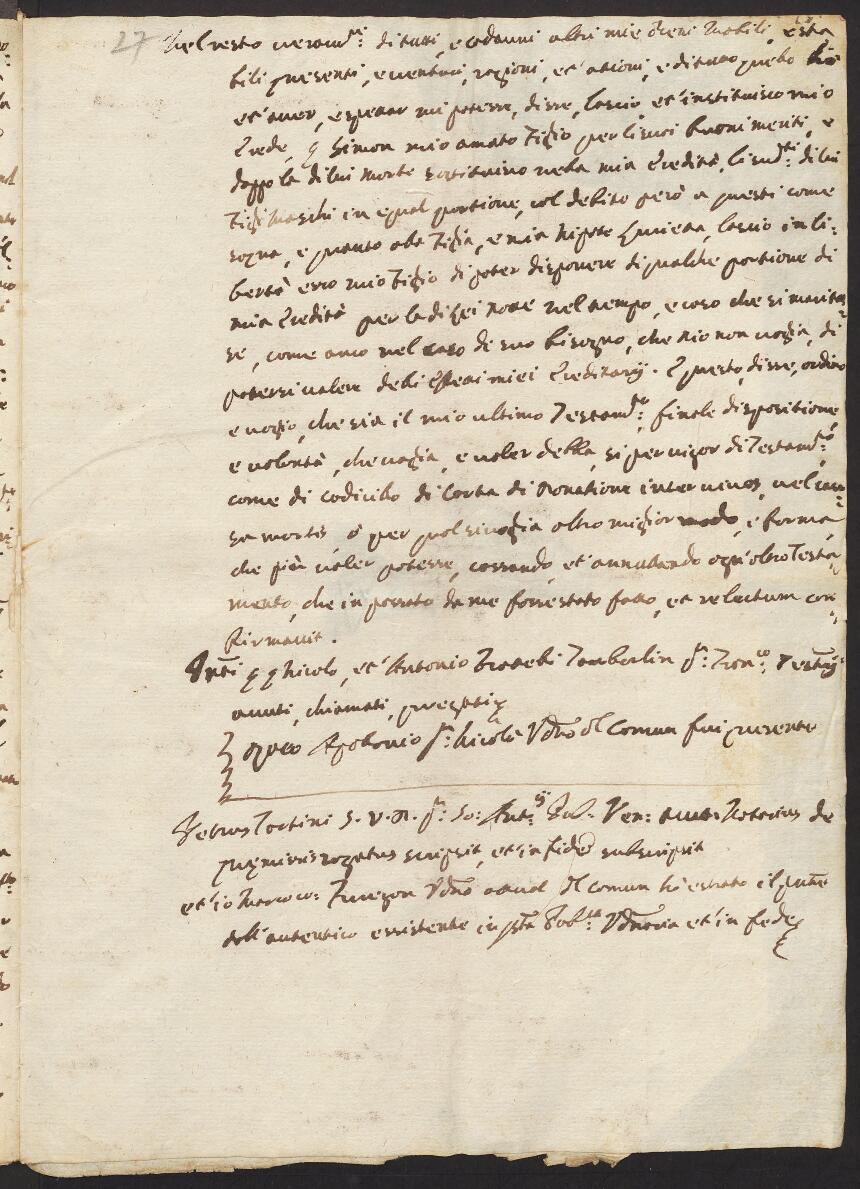 27 Nel resto veram.te di tutti, e cadauni altri mie beni mobili, e sta
bili presenti, e venturi, ragioni, et ationi, e di tutto quello hò
et aver, e sperar mi potesse, disse, lascio, et instituisco mio
Erede, q Simon mio amato Figlio per li suoi buoni meriti, e
doppo la di lui morte sostituisco nella mia Eredità, li sud.ti di lui
Figli Maschi in egual portione, col debito però a questi come
sopra, e quanto alla Figlia, e mia Nipote lascio in li:
bertà esso mio Figlio di poter disponere di qualche portione di
mia Eredità per la di lei dote nel tempo, e caso che si maritas:
se, come anco nel caso di suo bisogno, che Dio non voglia, di
potersi valere delli Effetti miei Ereditarij. E questo, disse, ordino
e voglio, che sia il mio ultimo Testam.to, finale dispositione,
e volontà, che vaglia, e valer debba, sì per vigor di Testam.to,
come di codicillo di Carta di Donatione inter vivos, vel cau:
sa mortis, ò per qual si voglia altro miglior modo, e forma
che più valer potesse, cassando, et annullando ogn'altro Testa:
mento, che in passato da me fosse stato fatto, et relectum con:
firmavit.
Pnti q q Nicolo, et Antonio Fratelli Tamburlin q.m Fran.co Testij
avuti, chiamati, pregati
Apolonio q.m Nicolò V.dno del Comun fui presente
Petrus Tortini q.m Jo: Ant.ij Pub. Ven: Aut. Notarius de
premissis rogatus scripsit, et in fidem subscripsit
et io Marco V.dno attual del comun hò estratto il pnte
dall'autentico essistente in qsta Pub.ca V.dnaria et in fede